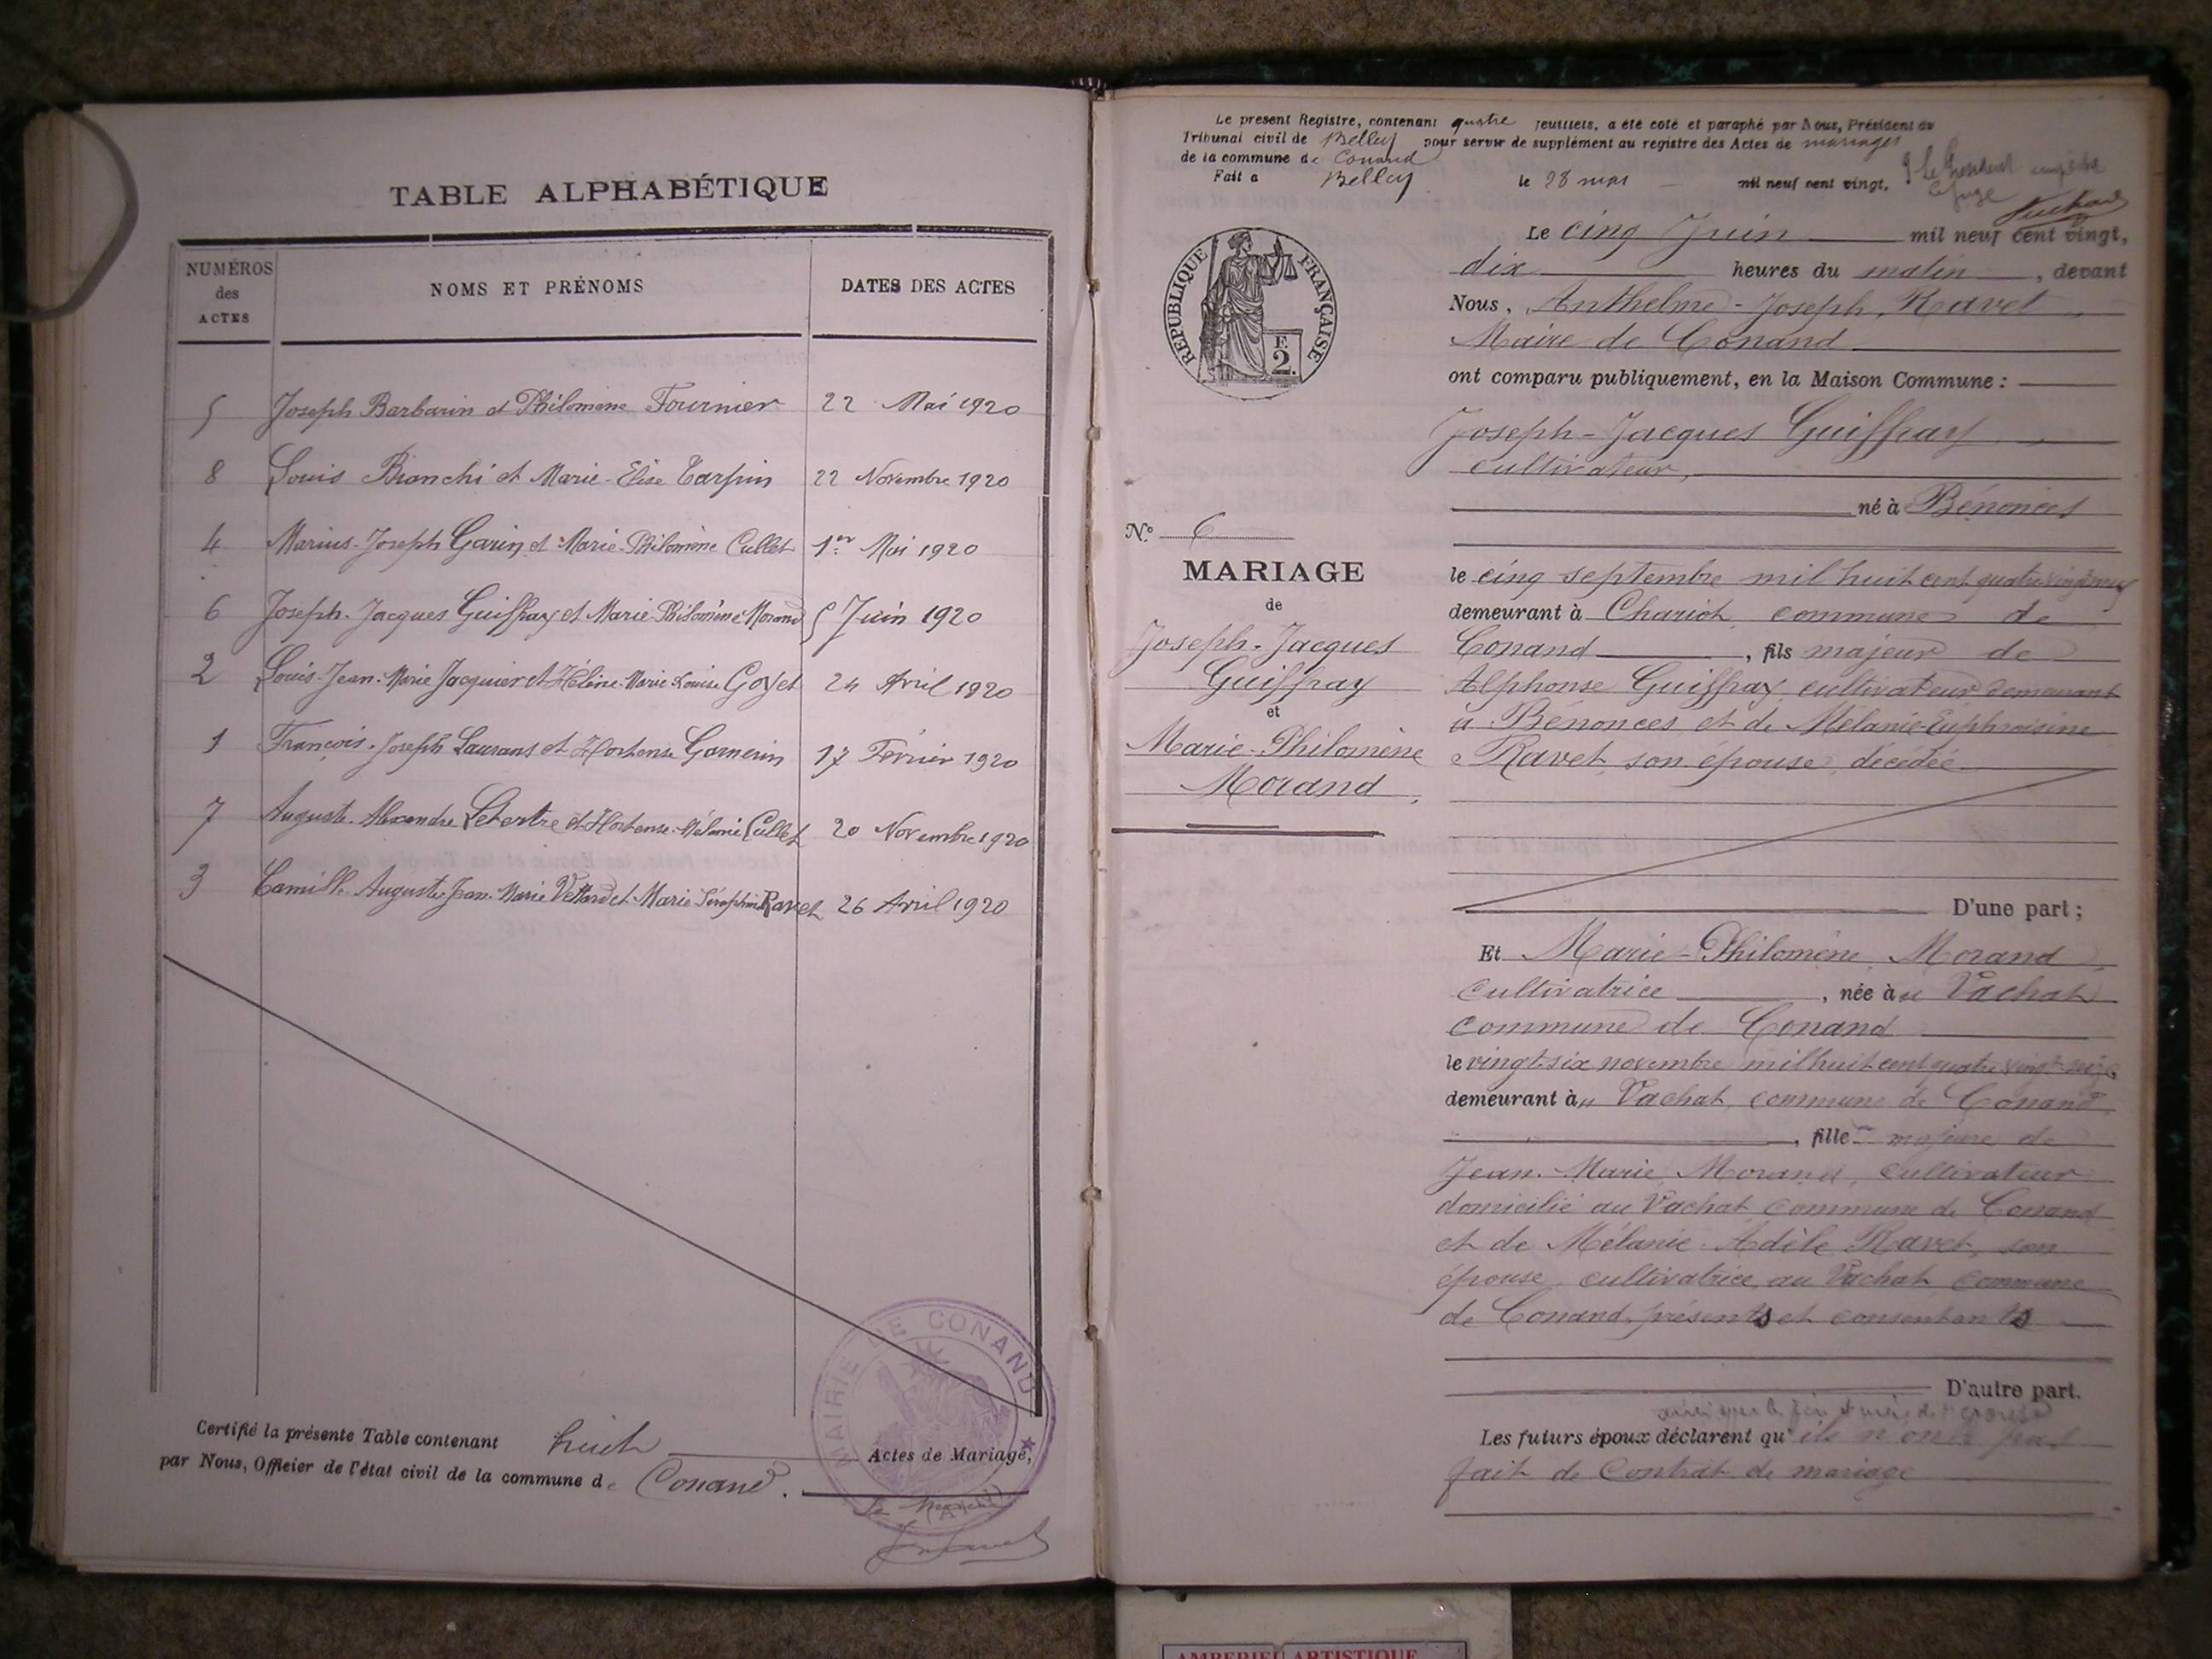 TABLE ALPHABÉTIQUE
NUMÉROS des ACTES
NOMS ET PRÉNOMS
DATES DES ACTES
5 Joseph Barbarin et Philomène Fournier 22 Mai 1920
8 Louis Bianchi et Marie-Elise Tarpin 22 Novembre 1920
4 Marius-Joseph Garin et Marie-Philomène Cullet 1er Mai 1920
6 Joseph-Jacques Guiffray et Marie-Philomène Morand 5 Juin 1920
2 Louis-Jean-Marie Jacquier et Hélène-Marie-Louise Goyet 24 Avril 1920
1 François-Joseph Laurans et Hortense Garnerin 17 Février 1920
7 Auguste-Alexandre Letertre et Hortense-Mélanie Cullet 20 Novembre 1920
3 Camille-Auguste-Jean-Marie Vettard et Marie Séraphine Ravet 26 Avril 1920
Certifié la présente Table contenant huit Actes de Mariage,
par Nous, Officier de l'état civil de la commune de Conand.
MAIRIE DE CONAND
(AIN)
Le Maire
Le présent Registre, contenant quatre feuillets, a été coté et paraphé par Nous, Président du
Tribunal civil de Belley pour servir de supplément au registre des Actes de mariages
de la commune de Conand
Fait à Belley le 28 mai mil neuf cent vingt,
P. le Président empêché
Le juge
RÉPUBLIQUE FRANÇAISE
F.
2.
Le cinq Juin mil neuf cent vingt,
dix heures du matin, devant
Nous, Anthelme-Joseph Ravet,
Maire de Conand
ont comparu publiquement, en la Maison Commune :
Joseph-Jacques Guiffray,
cultivateur,
né à Bénonces
N° 6
MARIAGE
de
Joseph-Jacques
Guiffray
et
Marie-Philomène
Morand,
le cinq septembre mil huit cent quatre vingt neuf
demeurant à Chariot, commune de
Conand, fils majeur de
Alphonse Guiffray cultivateur demeurant
à Bénonces et de Mélanie-Euphroisine
Ravet, son épouse, décédée
D'une part ;
Et Marie-Philomène Morand,
cultivatrice, née au Vachat
commune de Conand
le vingt-six novembre mil huit cent quatre vingt-seize,
demeurant au Vachat, commune de Conand,
, fille majeure de
Jean-Marie Morand, cultivateur
domicilié au Vachat commune de Conand
et de Mélanie-Adèle Ravet, son
épouse, cultivatrice, au Vachat commune
de Conand, présents et consentants
D'autre part.
ainsi que le père et mère de l'épouse
Les futurs époux déclarent qu'ils n'ont pas
fait de Contrat de mariage
AMBERIEU ARTISTIQUE